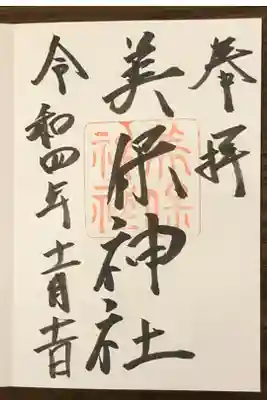 奉拝
美保神社
令和四年十一月吉日